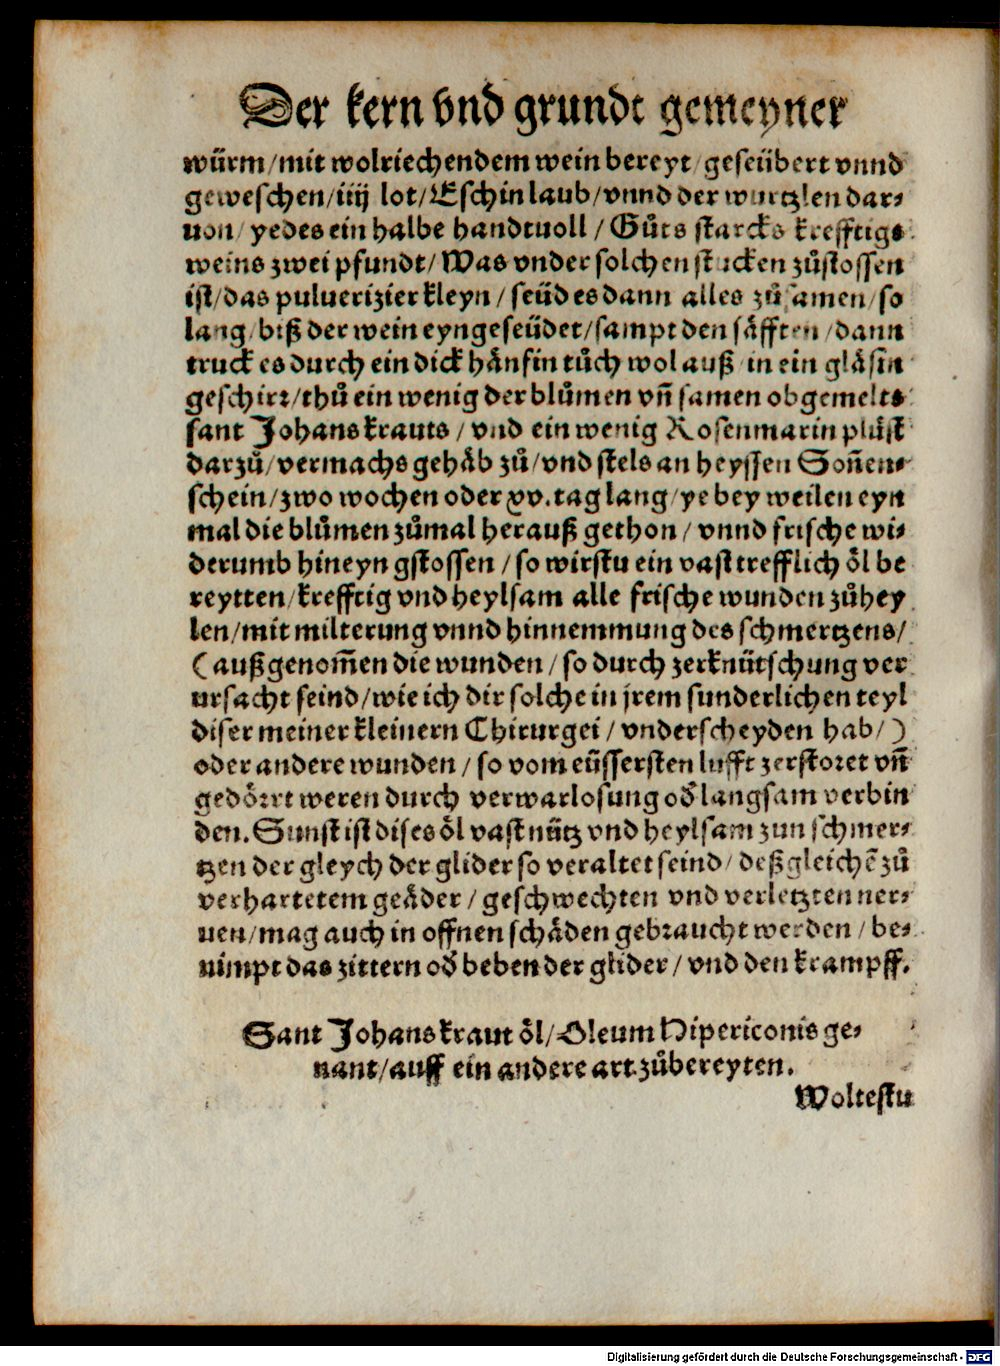 Der kern vnd grundt gemeyner
wuͤrm/mit wolriechendem wein bereyt/geseübert vnnd
geweschen/iiij lot/Eschin laub/vnnd der wurtzlen dar⸗
uon/yedes ein halbe handtuoll/Guͦts starcks krefftigs
weins zwei pfundt/Was vnder solchen stucken zuͦstossen
ist/das puluerizier kleyn/seüd es dann alles zuͦsamen/so
lang/biß der wein eyngeseüdet/sampt den saͤfften/dann
truck es durch ein dick haͤnfin tuͦch wol auß/in ein glaͤsin
geschirr/thuͦ ein wenig der bluͦmen vñ samen obgemelts
sant Johanskrauts/vnd ein wenig Rosenmarin pluͤst
darzuͦ/vermachs gehaͤb zuͦ/vnd stels an heyssen Soñen⸗
schein/zwo wochen oder xv.tag lang/ye bey weilen eyn
mal die bluͦmen zuͦmal herauß gethon/vnnd frische wi⸗
derumb hineyn gstossen/so wirstu ein vast trefflich oͤl be
reytten/krefftig vnd heylsam alle frische wunden zuͦhey
len/mit milterung vnnd hinnemmung des schmertzens/
(außgenom̃en die wunden/so durch zerknütschung ver
ursacht seind/wie ich dir solche in jrem sunderlichen teyl
diser meiner kleinern Chirurgei/vnderscheyden hab/)
oder andere wunden/so vom eüssersten lufft zerstoret vñ
gedoͤrrt weren durch verwarlosung oď langsam verbin
den.Sunst ist dises oͤl vast nütz vnd heylsam zun schmer⸗
tzen der gleych der glider so veraltet seind/deßgleichẽ zuͦ
verhartetem geaͤder/geschwechten vnd verletzten ner⸗
uen/mag auch in offnen schaͤden gebraucht werden/be⸗
nimpt das zittern oď beben der glider/vnd den krampff.
Sant Johanskraut oͤl/Oleum Hipericonis ge⸗
nant/auff ein andere art zuͦbereyten.
Woltestu
Digitalisierung gefördert durch die Deutsche Forschungsgemeinschaft - DFG